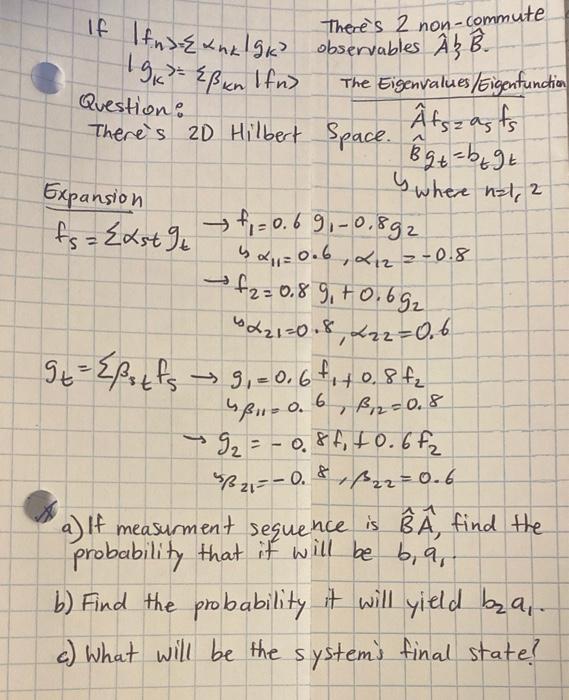 If |fn>=Σ αnk|gk>
There's 2 non-commute
observables Â & B̂.
|gk>= Σβkn |fn>
The Eigenvalues/Eigenfunction
Question:
There's 2D Hilbert Space.
Âfs=as fs
B̂gt=bt gt
↳ where n=1, 2
Expansion
fs = Σαst gt → f1=0.6 g1-0.8g2
↳ α11=0.6, α12=-0.8
→ f2=0.8 g1+0.6g2
↳ α21=0.8, α22=0.6
gt=Σβst fs → g1=0.6 f1+0.8 f2
↳ β11=0.6, β12=0.8
→ g2=-0.8f1+0.6f2
↳ β21=-0.8, β22=0.6
a) If measurment sequence is B̂Â, find the
probability that it will be b1a1.
b) Find the probability it will yield b2a1.
c) What will be the system's final state?